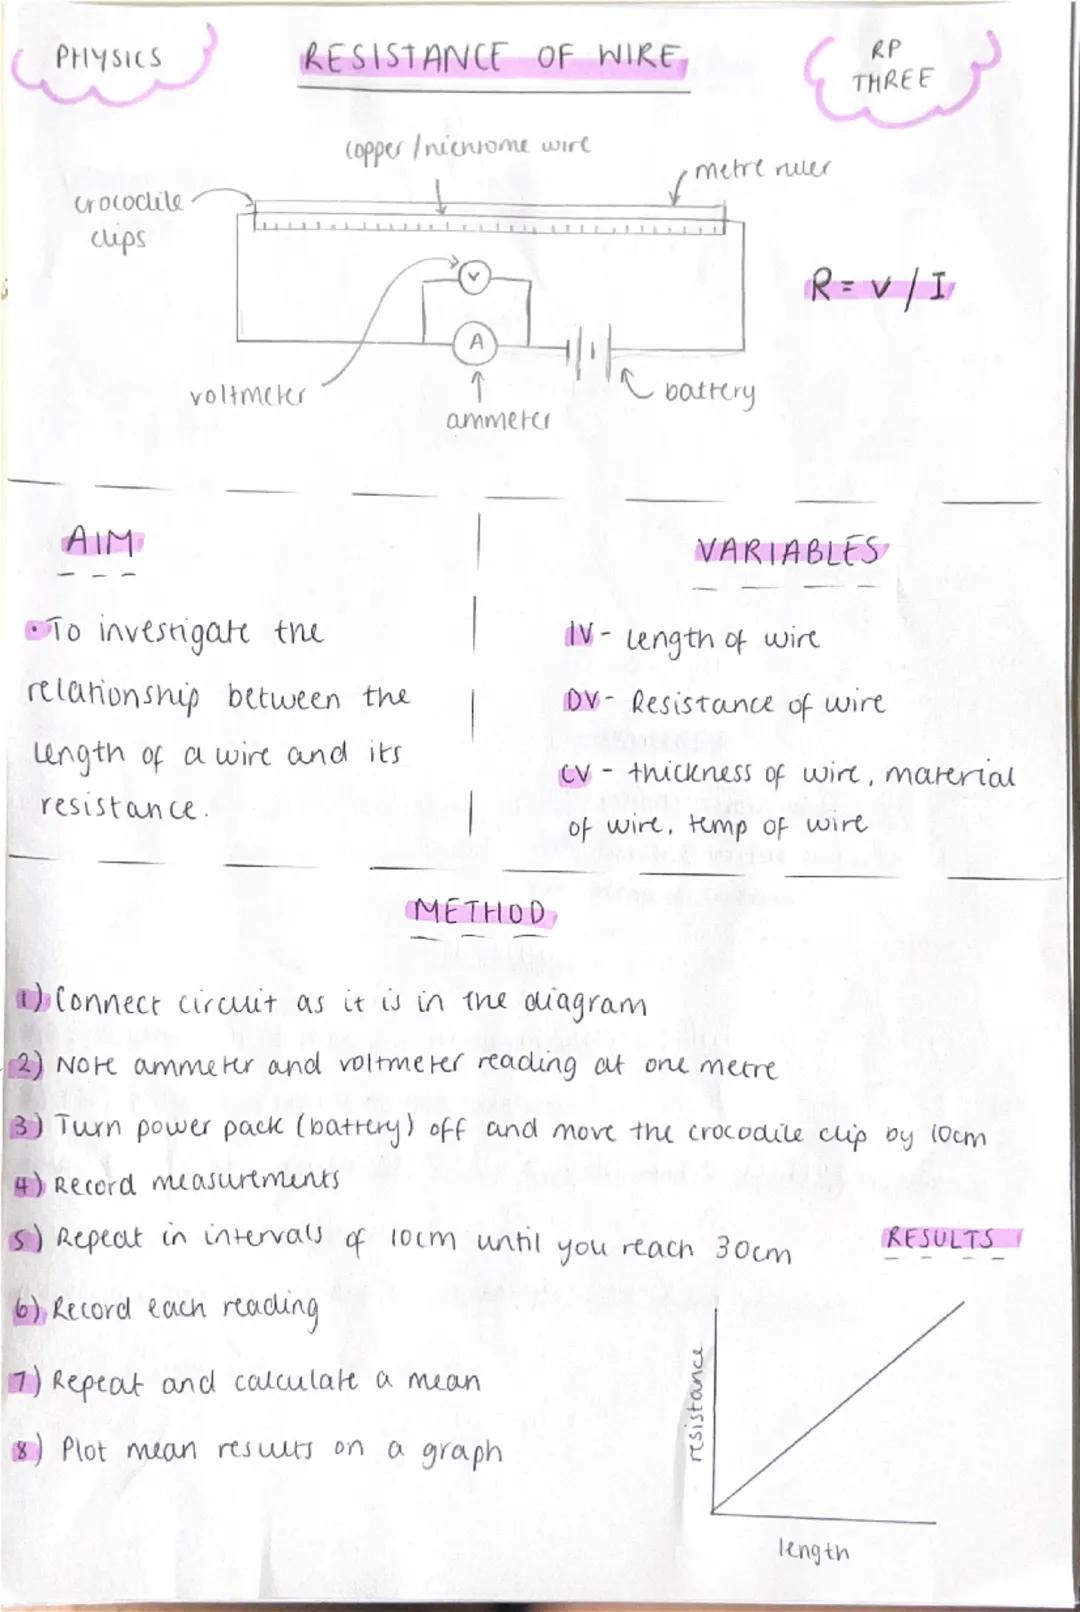 PHYSICS
RESISTANCE OF WIRE
RP
THREE
copper / nichrome wire
metre ruler
crocodile
clips
R = V / I
V
A
voltmeter
ammeter
battery
AIM
• To investigate the
relationship between the
length of a wire and its
resistance.
VARIABLES
IV - Length of wire
DV - Resistance of wire
CV - thickness of wire, material
of wire, temp of wire
METHOD
1) Connect circuit as it is in the diagram
2) Note ammeter and voltmeter reading at one metre
3) Turn power pack (battery) off and move the crocodile clip by 10cm
4) Record measurements
5) Repeat in intervals of 10cm until you reach 30cm
6) Record each reading
7) Repeat and calculate a mean
8) Plot mean results on a graph
RESULTS
resistance
length